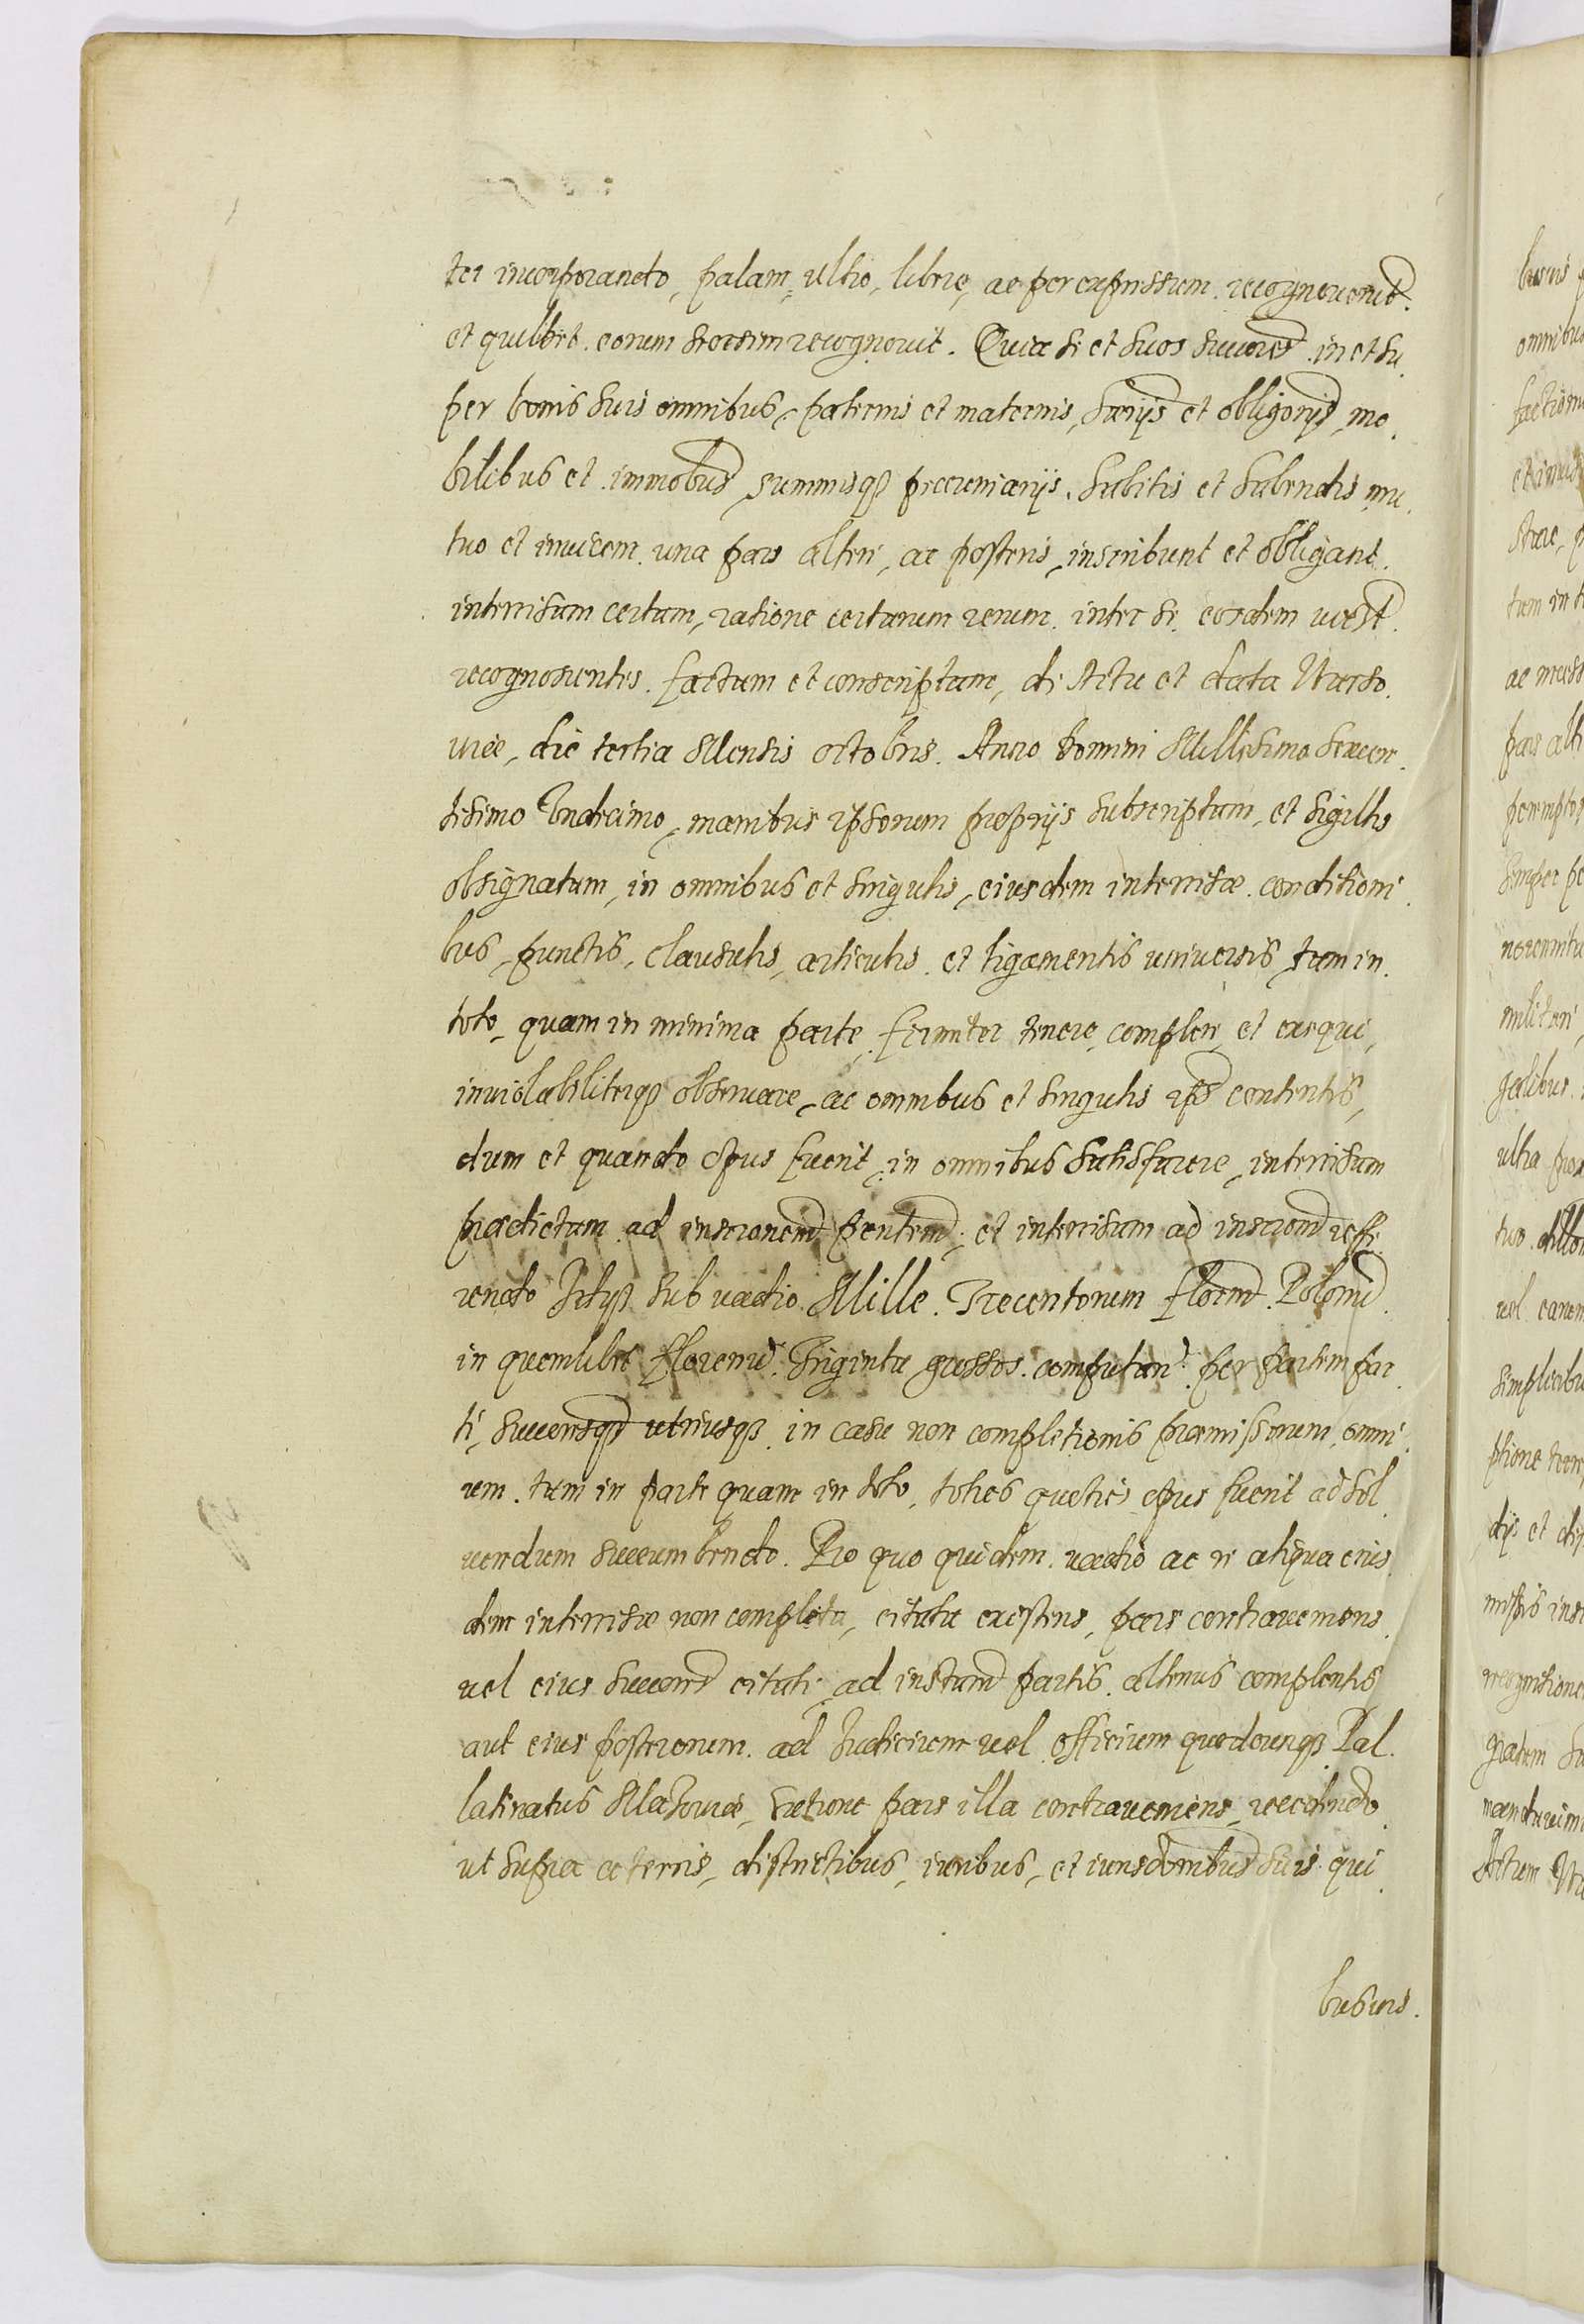 ter incorporando, palam, ultro, libere, ac per expressum recognoverunt.
et quilibet eorum seorsim recognovit. Quia se et suos succores in et su
per bonis suis omnibus, paternis et maternis, hærijs et obligorijs, mo
bilibus et immobus, summisq pecuniarijs, habitis et habendis mu
tuo et invicem una pars alteri, ac posteris, inscribunt et obligant
intercisam certam, ratione certarum rerum inter se eosdem
recognoscentes factam et conscriptam, de Actu et data Varso
viæ, die tertia Mensis octobris. Anno Domini Millesimo Sexcen
tesimo Undecimo, manibus ipsorum proprijs subscriptam, et sigillis
obsignatam, in omnibus et singulis, eiusdem intercisæ conditioni
bus, punctis, clausulis, articulis et ligamentis universis, tam in
toto, quam in minima parte, firmiter tenere, complere, et exequi,
inviolabiliterq observare, ac omnibus et singulis ips contentis,
dum et quando opus fuerit, in omnibus satisfacere, intercisam
prædictam ad inscronem pentem, et intercisam ad inscronem reffe
rendo sub vadio Mille Trecentorum floren. Polon
in quemlibet florenum Triginta grossos computan. per partem par
ti, succoresq utriusq in casu non completionis præmissorum omni
um tam in parte quam in toto, toties quoties opus fuerit ad sol
vendum succumbendo. Pro quo quidem vadio ac re aliqua eius
dem intercisæ non completa, citata existens, pars contraveniens
vel eius succores citati, ad instantiam partis alterius complentis
aut eius posterorum ad Judicium vel officium quodcunq Pal
latinatus Mazoviæ, ratione pars illa contraveniens, recedendo
ut supra a terris, districtibus, iuribus, et iurisdonibus suis qui
busvis.